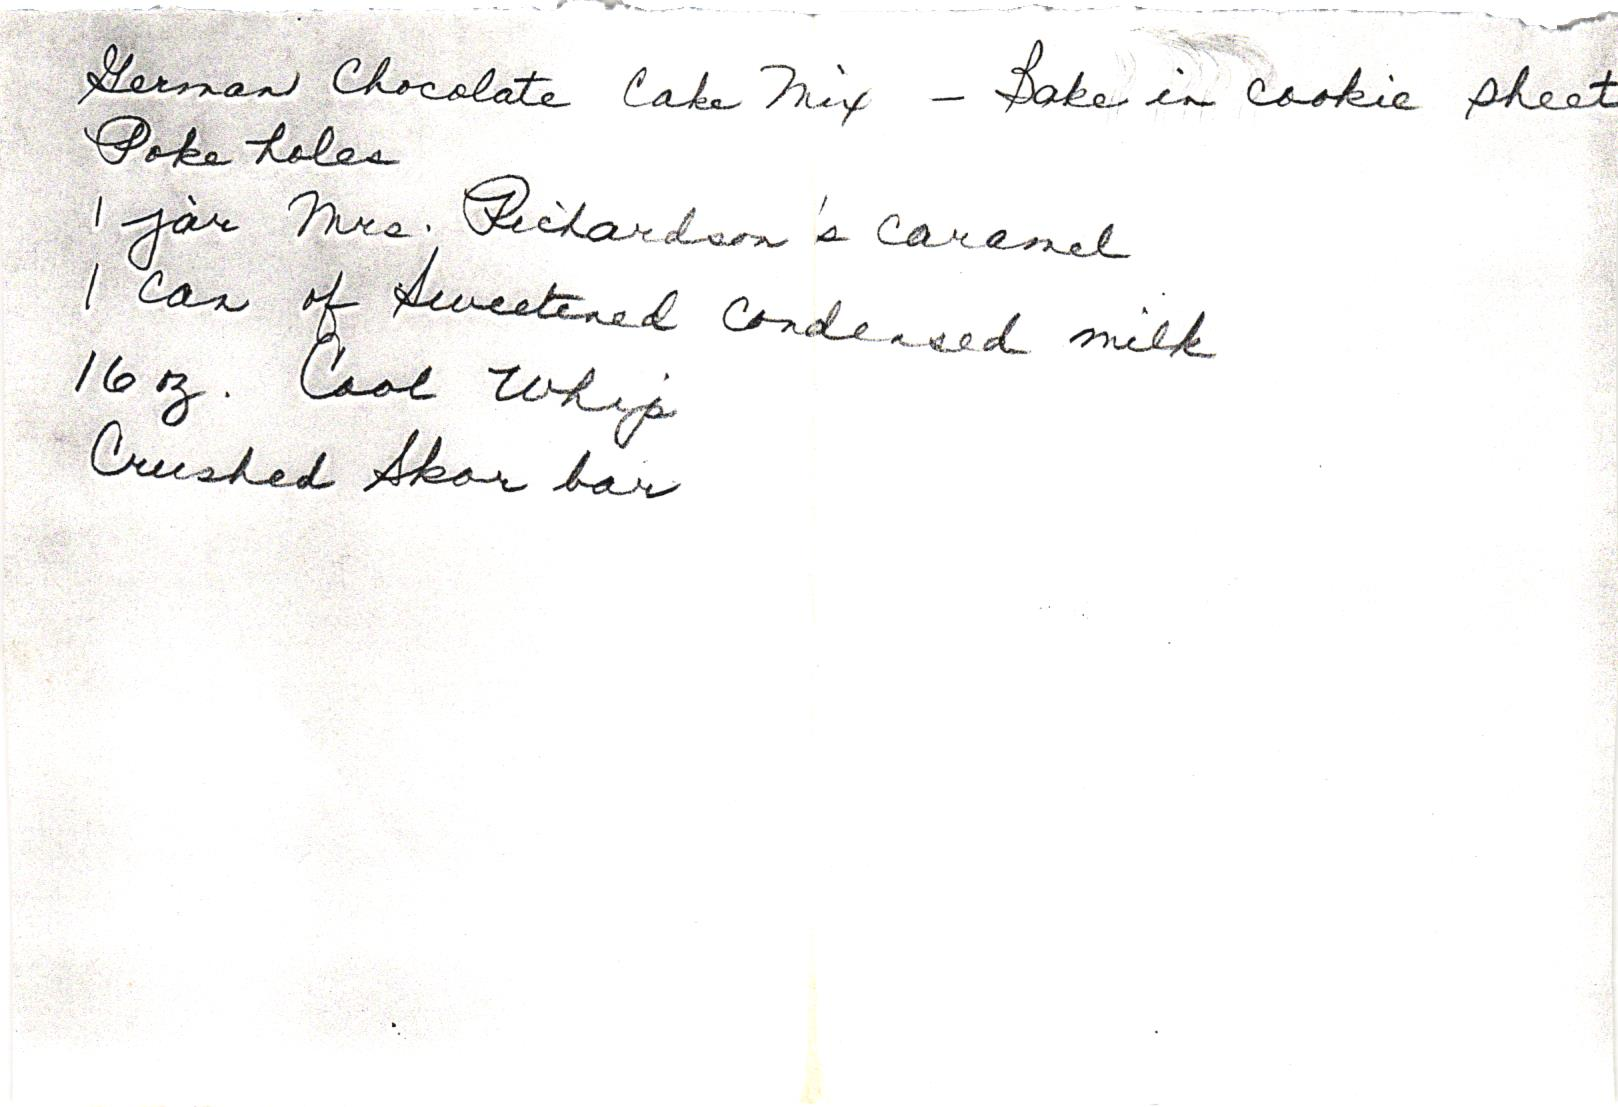 German Chocolate Cake Mix - Bake in cookie sheet
Poke holes
1 jar Mrs. Richardson's Caramel
1 Can of Sweetened Condensed milk
16 oz. Cool Whip
Crushed Skor bar